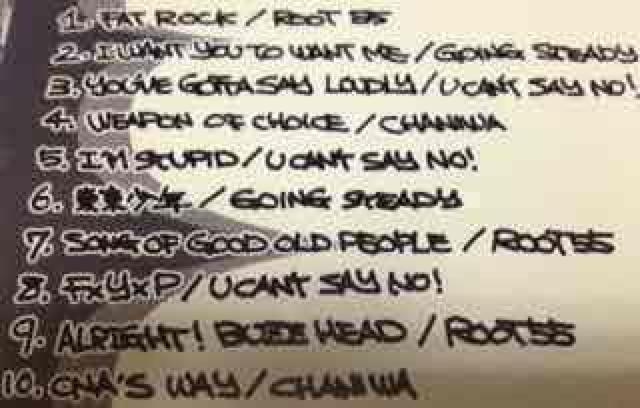 1. FAT ROCK / ROOT 55
2. I WANT YOU TO WANT ME / GOING STEADY
3. YOU'VE GOTTA SAY LOUDLY / U CANT SAY NO!
4. WEAPON OF CHOICE / CHANIWA
5. I'M STUPID / U CANT SAY NO!
6. 東京少年 / GOING STEADY
7. SONG OF GOOD OLD PEOPLE / ROOT55
8. FxYxP / U CANT SAY NO!
9. ALRIGHT! BUZZ HEAD / ROOT55
10. CNA'S WAY / CHANIWA